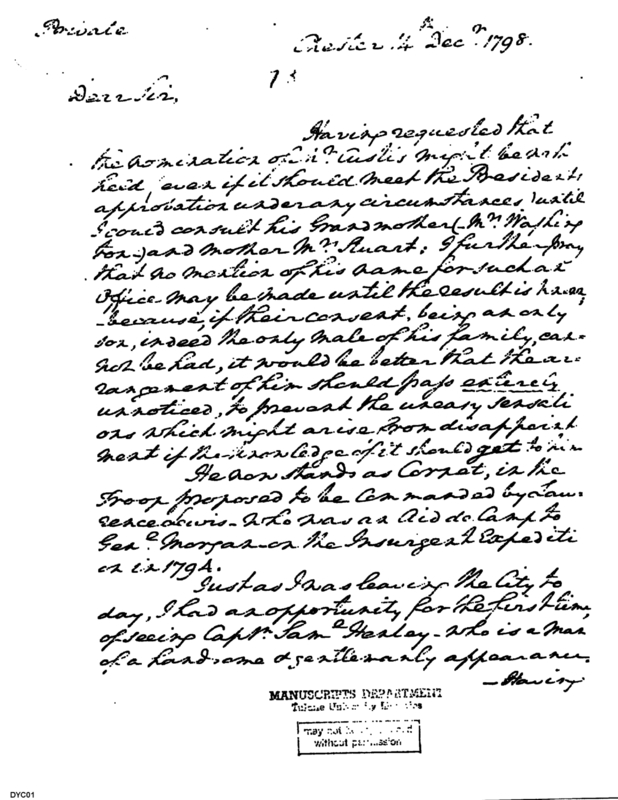 Private
Chester 14th Decr. 1798.
Dear Sir,
Having requested that
the nomination of Mr. Custis might be with
held, (even if it should meet the Presidents
approbation under any circumstances) until
I could consult his Grandmother (Mrs. Washing
ton) and mother Mrs. Stuart; I further pray
that no mention of his name for such an
Office may be made until the result is known,
because, if their consent, being an only
son, indeed the only male of his family, can-
not be had, it would be better that the ar-
rangement of him should pass entirely
unnoticed, to prevent the uneasy sensati
ons which might arise from disappoint
ment if the knowledge of it should get to him
He now stands as Cornet, in the
Troop proposed to be Commanded by Law-
rence Lewis - who was an Aid de Camp to
Genl. Morgan on the Insurgent Expediti
on in 1794.
Just as I was leaving the City to
day, I had an opportunity for the first time,
of seeing Captn. Saml. Henley - who is a man
of a handsome & gentlemanly appearance.
- Having
MANUSCRIPTS DEPARTMENT
Tulane University Libraries
may not be
without permission
DYC01